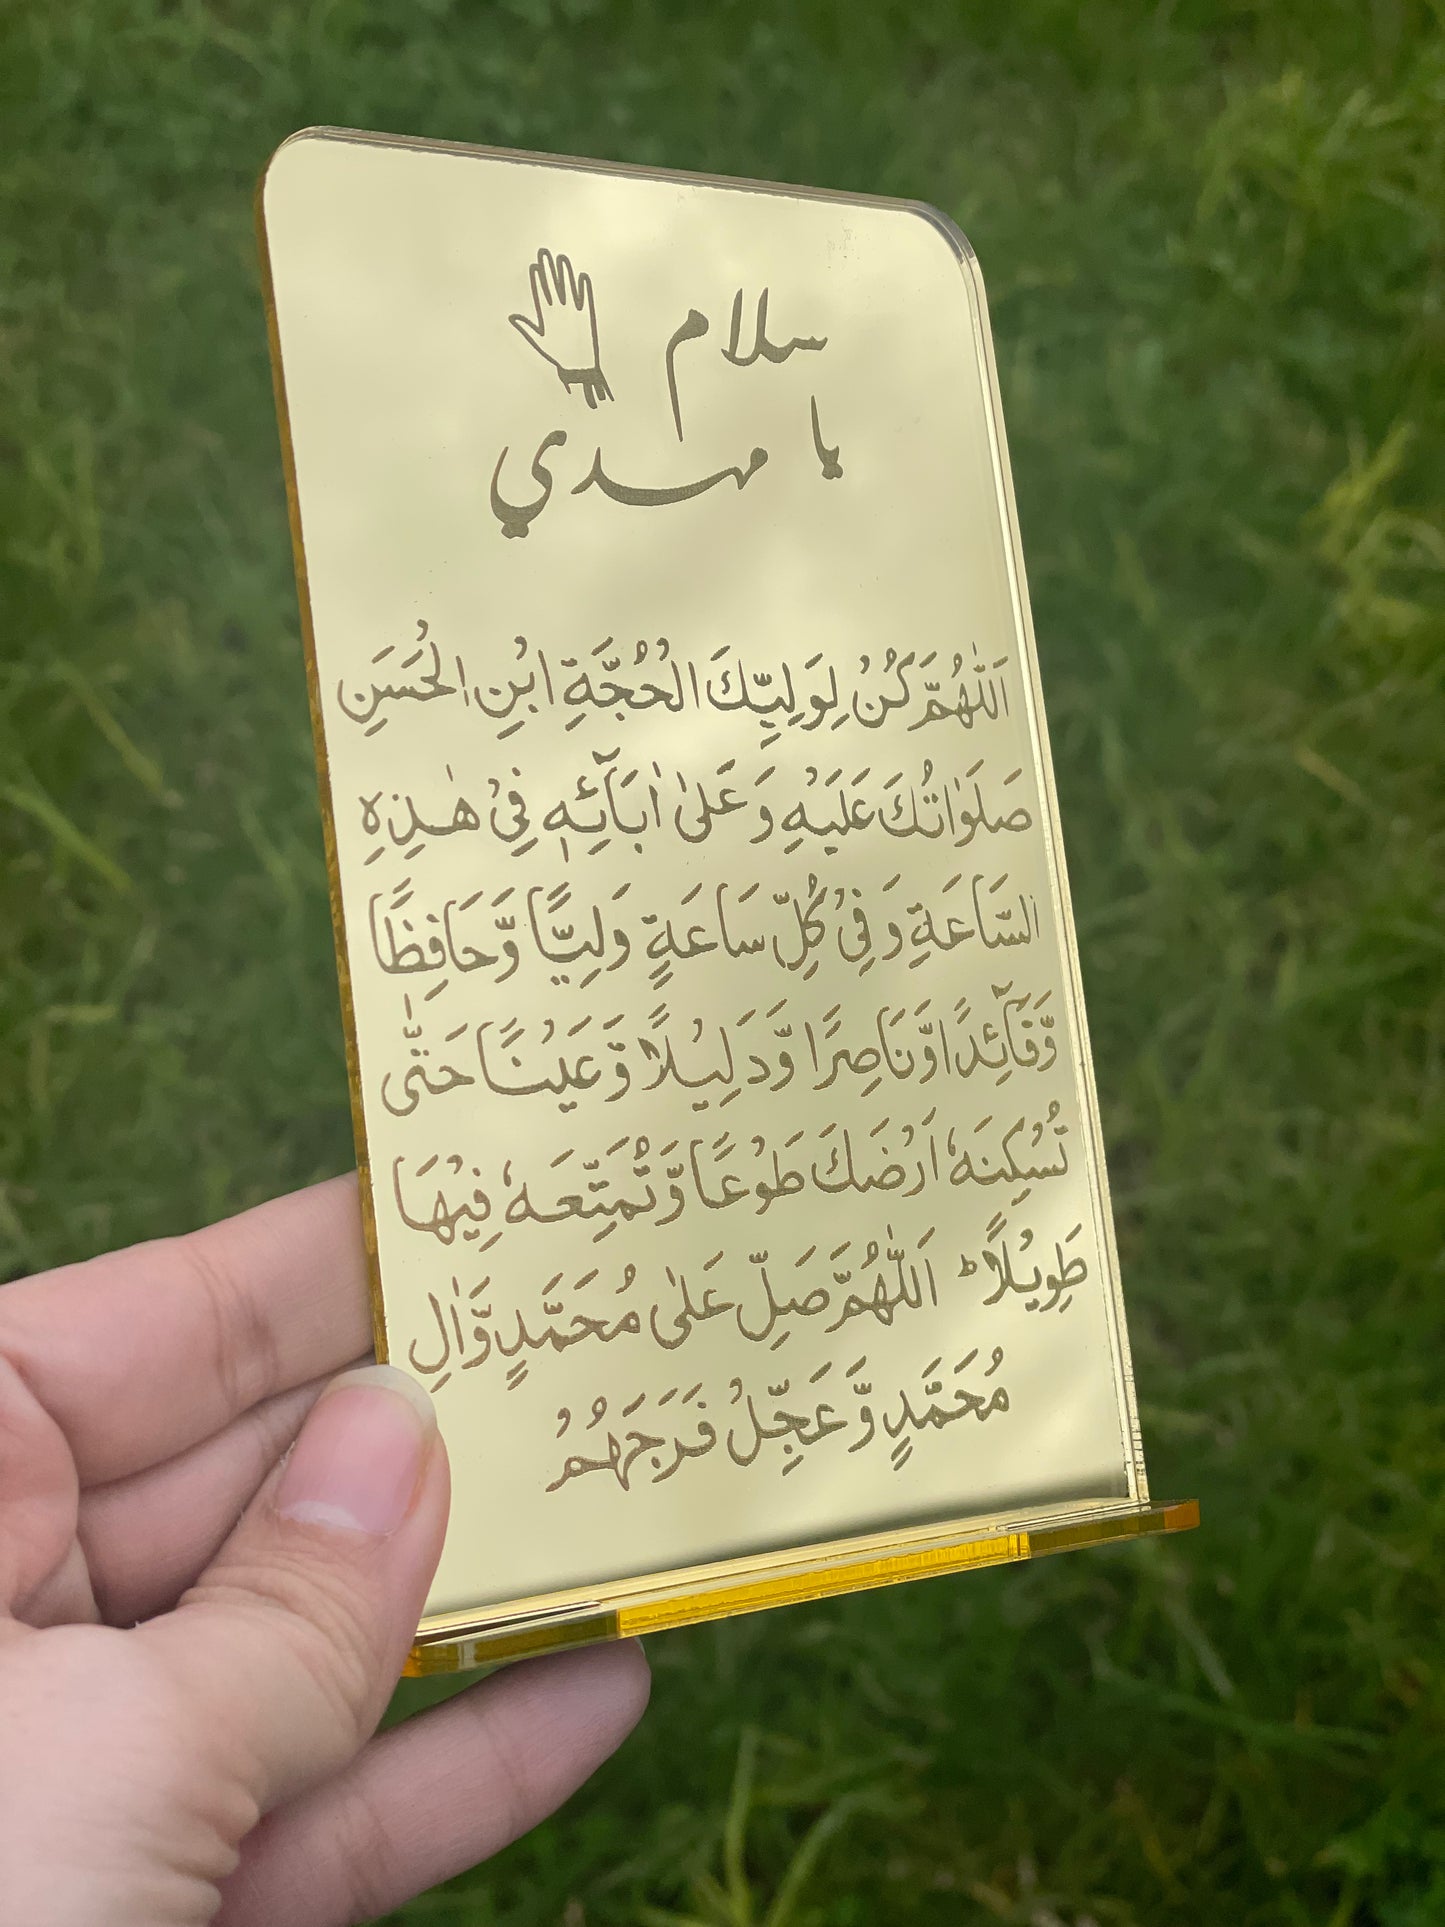 سلام
يا مهدي
اَللّٰهُمَّ كُنْ لِوَلِيِّكَ الْحُجَّةِ ابْنِ الْحَسَنِ
صَلَوٰاتُكَ عَلَيْهِ وَعَلىٰ اٰبَآئِهٖ فِيْ هٰذِهِ
السَّاعَةِ وَفِيْ كُلِّ سَاعَةٍ وَلِيًّا وَّحَافِظًا
وَّقَآئِدًا وَّنَاصِرًا وَّدَلِيْلًا وَّعَيْنًا حَتّٰى
تُسْكِنَهٗ اَرْضَكَ طَوْعًا وَّتُمَتِّعَهٗ فِيْهَا
طَوِيْلًاؕ اَللّٰهُمَّ صَلِّ عَلىٰ مُحَمَّدٍ وَّاٰلِ
مُحَمَّدٍ وَّعَجِّلْ فَرَجَهُمْ